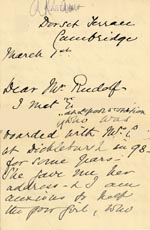 Dorset Terrace
Cambridge
March 1st
Dear Mr. Rudolf
I met E.
who was
boarded with Mrs. C
at Dickleburd in 98
for some years.
She gave me her
address & I am
anxious to help
the poor girl, who